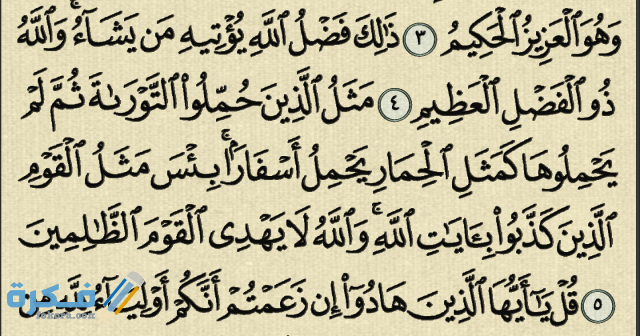 وَهُوَ ٱلْعَزِيزُ ٱلْحَكِيمُ ٣ ذَٰلِكَ فَضْلُ ٱللَّهِ يُؤْتِيهِ مَن يَشَآءُۚ وَٱللَّهُ
ذُو ٱلْفَضْلِ ٱلْعَظِيمِ ٤ مَثَلُ ٱلَّذِينَ حُمِّلُوا۟ ٱلتَّوْرَىٰةَ ثُمَّ لَمْ
يَحْمِلُوهَا كَمَثَلِ ٱلْحِمَارِ يَحْمِلُ أَسْفَارًۢاۚ بِئْسَ مَثَلُ ٱلْقَوْمِ
ٱلَّذِينَ كَذَّبُوا۟ بِـَٔايَٰتِ ٱللَّهِۚ وَٱللَّهُ لَا يَهْدِى ٱلْقَوْمَ ٱلظَّٰلِمِينَ
٥ قُلْ يَٰٓأَيُّهَا ٱلَّذِينَ هَادُوٓا۟ إِن زَعَمْتُمْ أَنَّكُمْ أَوْلِيَآءُ لِلَّهِ مِن
فكرة